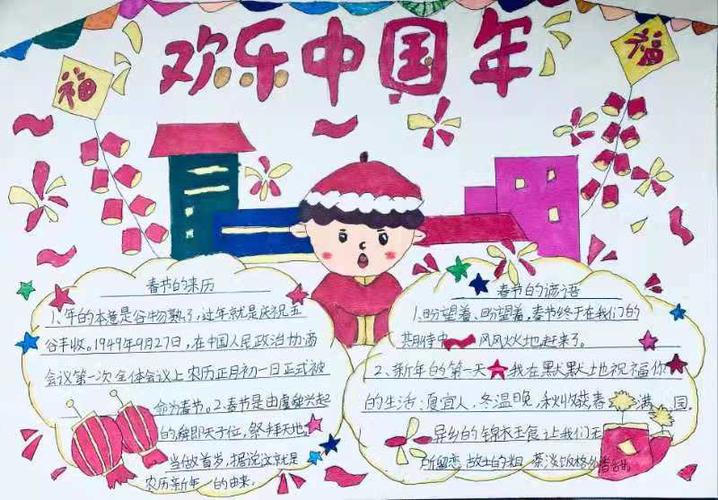 欢乐中国年
福
福
春节的来历
1、年的本意是谷物熟了,过年就是庆祝五
谷丰收。1949年9月27日,在中国人民政治协商
会议第一次全体会议上农历正月初一日正式被
命为春节。2、春节是由虞舜兴起
的,舜即天子位,祭拜天地,
当做首岁,据说这就是
农历新年的由来。
春节的谚语
1、盼望着、盼望着,春节终于在我们的
期待中 风风火火地赶来了。
2、新年的第一天 我在默默地祝福你
的生活:夏宜人、冬温晚、春 满 园.
异乡的锦衣玉食让我们无
所留恋 故土的粗 茶淡饭格外香甜